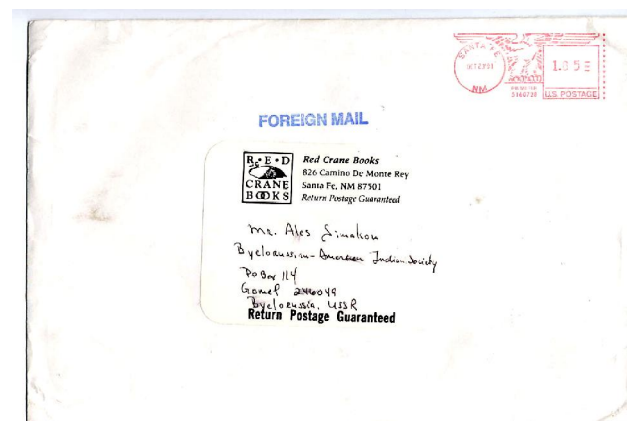 SANTA FE
OCT 22 91
NM
U.S. POSTAGE
FOREIGN MAIL
R•E•D
CRANE
BOOKS
Red Crane Books
826 Camino De Monte Rey
Santa Fe, NM 87501
Return Postage Guaranteed
Mr. Ales Simakou
Byelorussian-American Indian Society
PO Box 114
Gomel 246049
Byelorussia, USSR
Return Postage Guaranteed